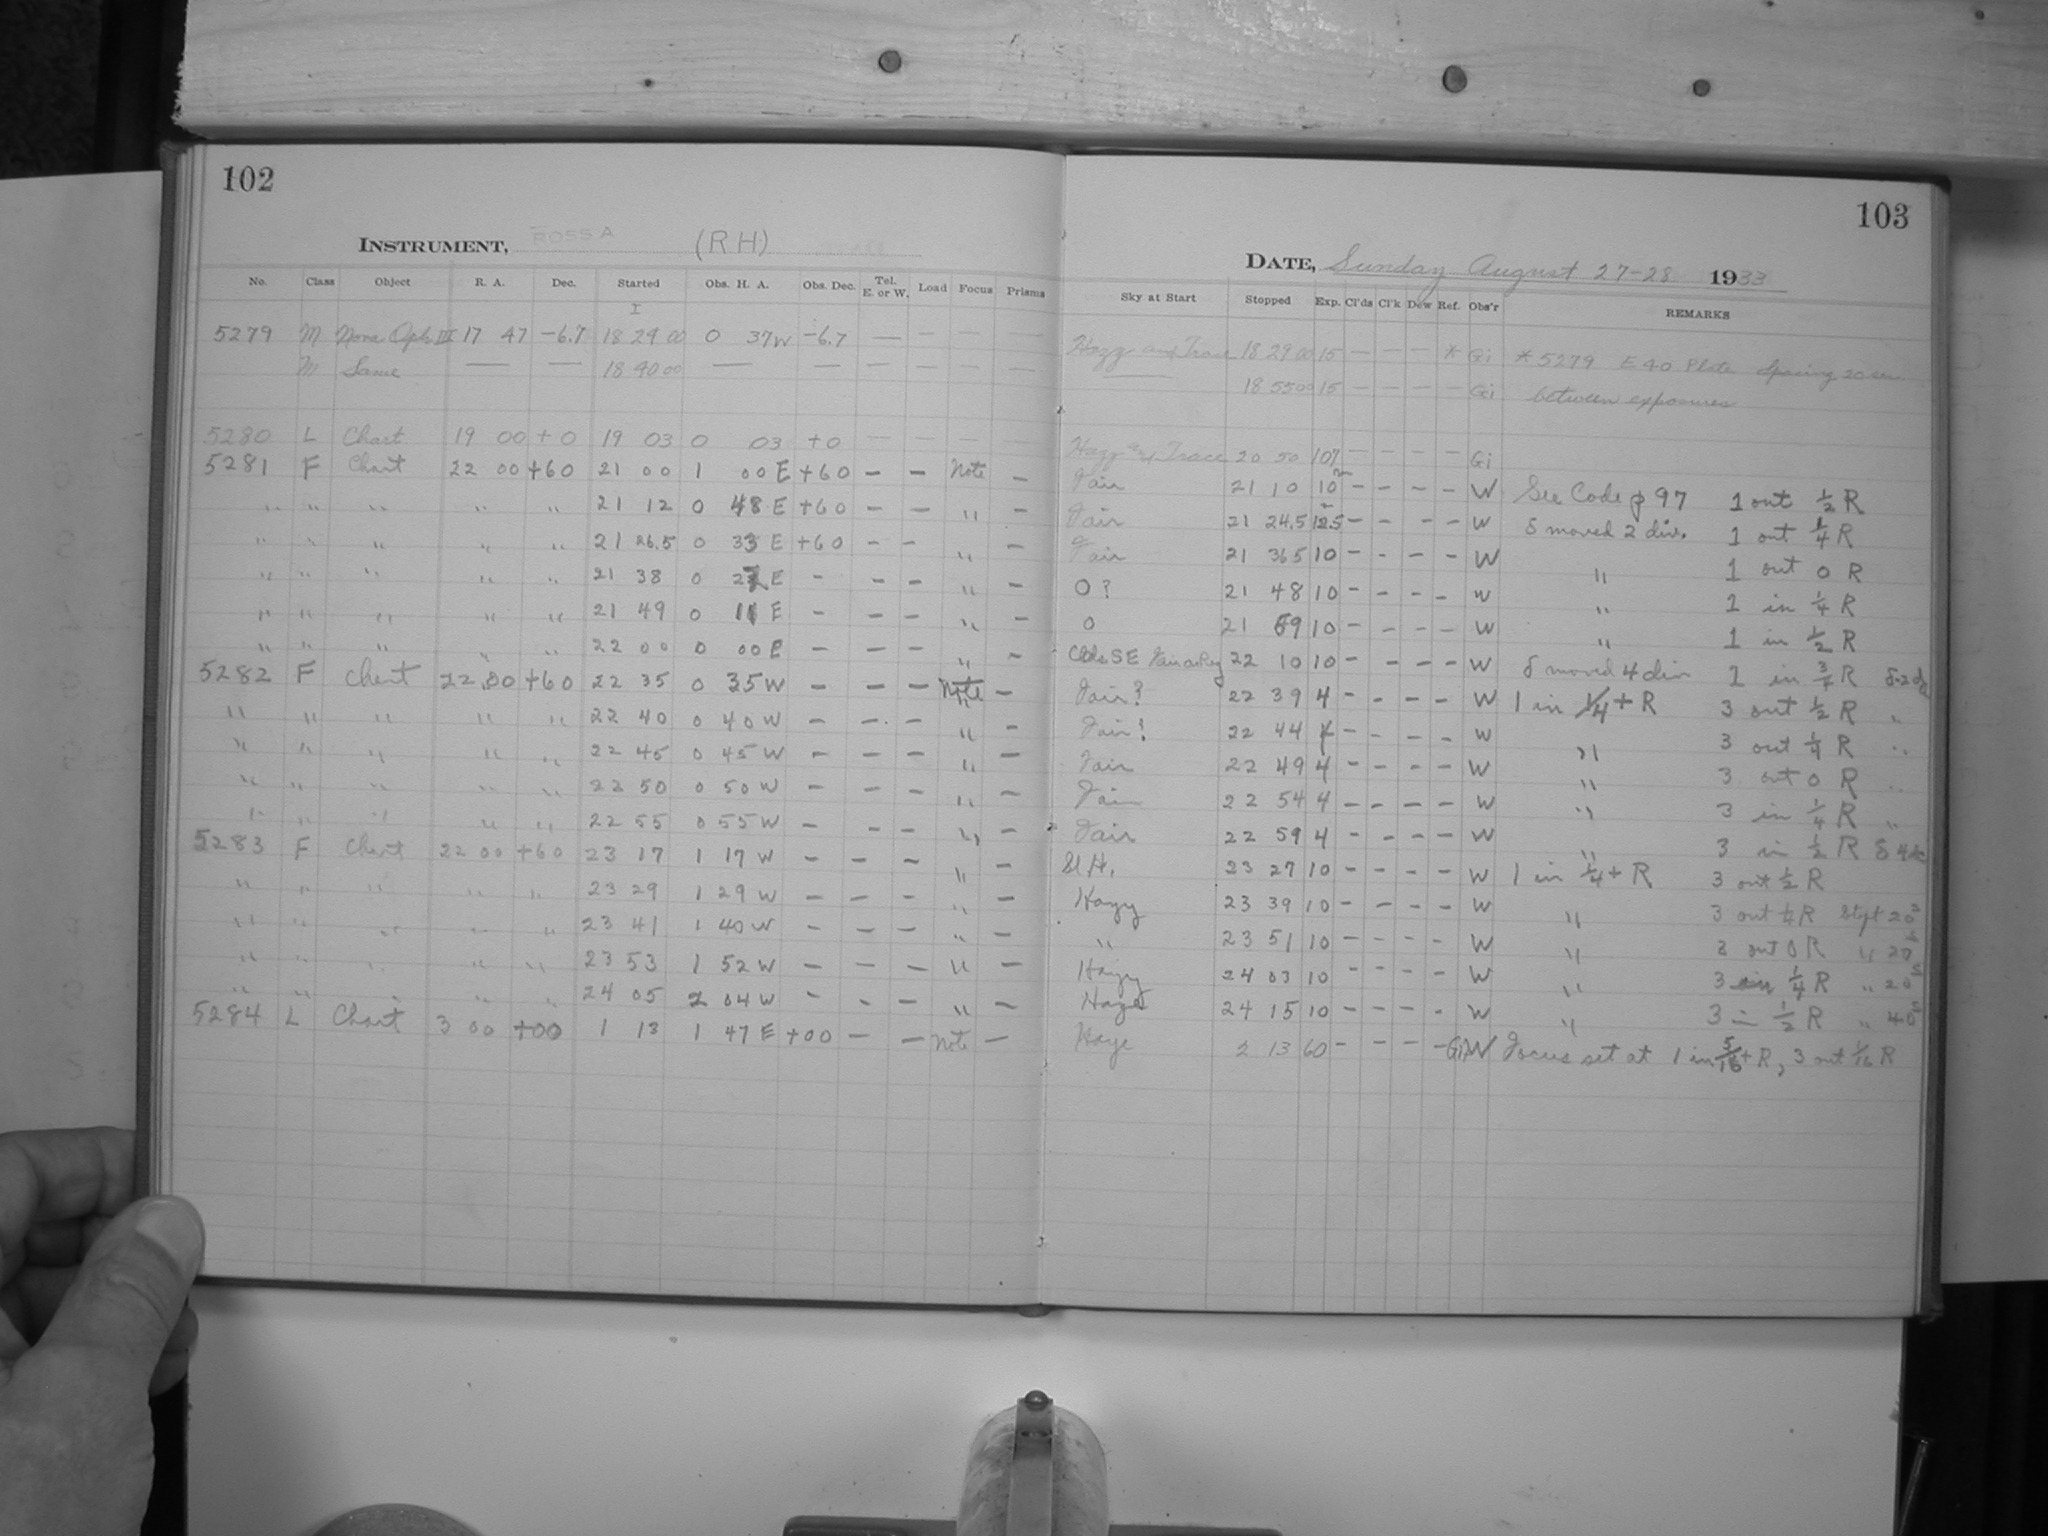 102
INSTRUMENT, ROSS A (RH)
No. Class Object R. A. Dec. Started Obs. H. A. Obs. Dec. Tel. E. or W. Load Focus Prisms
I
5279 M Nova Oph III 17 47 -6.7 18 29 00 0 37 W -6.7 — — — —
M Same — — 18 40 00 — — — — — —
5280 L Chart 19 00 +0 19 03 0 03 +0 — — — —
5281 F Chart 22 00 +60 21 00 1 00 E +60 - - Note -
" " " " " 21 12 0 48 E +60 - - " -
" " " " " 21 26.5 0 33 E +60 - - " -
" " " " " 21 38 0 22 E - - - " -
" " " " " 21 49 0 11 E - - - " -
" " " " " 22 00 0 00 E - - - " -
5282 F Chart 22.00 +60 22 35 0 35 W - - - Note -
" " " " " 22 40 0 40 W - - - " -
" " " " " 22 45 0 45 W - - - " -
" " " " " 22 50 0 50 W - - - " -
" " " " " 22 55 0 55 W - - - " -
5283 F Chart 22 00 +60 23 17 1 17 W - - - " -
" " " " " 23 29 1 29 W - - - " -
" " " " " 23 41 1 40 W - - - " -
" " " " " 23 53 1 52 W - - - " -
" " " " " 24 05 2 04 W - - - " -
5284 L Chart 3 00 +00 1 13 1 47 E +00 - - Note -
103
DATE, Sunday August 27-28 1933
Sky at Start Stopped Exp. Cl'ds Cl'k Dew Ref. Obs'r REMARKS
Hazy and Trace 18 29 00 15 — — — * Gi * 5279 E 40 Plate Spacing 20 sec
— 18 55 00 15 — — — — Gi between exposures
Hazy and Trace 20 50 107 — — — — Gi
Fair 21 10 10 - - - - W See Code p 97 1 out ½ R
Fair 21 24.5 12.5 - - - - W δ moved 2 div. 1 out ¼ R
Fair 21 36.5 10 - - - - W " 1 out 0 R
O? 21 48 10 - - - - W " 1 in ¼ R
O 21 59 10 - - - - W " 1 in ½ R
Clds SE 22 10 10 - - - - W δ moved 4 div 1 in ¾ R
Fair? 22 39 4 - - - - W 1 in ¼ + R 3 out ½ R "
Fair? 22 44 4 - - - - W " 3 out ¼ R "
Fair 22 49 4 - - - - W " 3 out 0 R "
Fair 22 54 4 - - - - W " 3 in ¼ R "
Fair 22 59 4 - - - - W " 3 in ½ R
Sl H. 23 27 10 - - - - W 1 in ¼ + R 3 out ½ R
Hazy 23 39 10 - - - - W " 3 out ¼ R 20s
" 23 51 10 - - - - W " 3 out 0 R " 20s
Hazy 24 03 10 - - - - W " 3 in ¼ R " 20s
Haze 24 15 10 - - - - W " 3 in ½ R " 40s
Haze 2 13 60 - - - - Gi W Focus set at 1 in 5/16 + R, 3 out 1/16 R